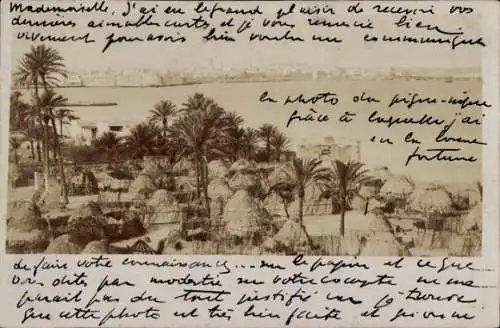 Mademoiselle, j'ai eu le grand plaisir de recevoir vos
dernières aimables cartes et je vous remercie bien
vivement pour avoir bien voulu me communiquer
la photo du pique-nique
grâce à laquelle j'ai
eu la bonne
fortune
de faire votre connaissance... sur le papier et ce que
vous dites par modestie sur votre compte me
paraît pas du tout justifié car je trouve
que cette photo est très bien faite et je vous